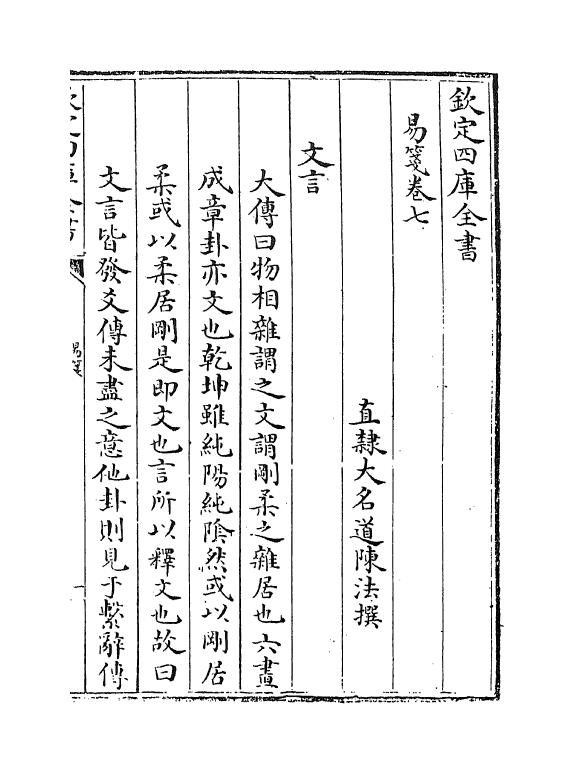 欽定四庫全書
易箋卷七
直隸大名道陳法撰
文言
大傳曰物相雜謂之文謂剛柔之雜居也六畫
成章卦亦文也乾坤雖純陽純隂然或以剛居
柔或以柔居剛是即文也言所以釋文也故曰
文言皆發爻傳未盡之意他卦則見于繫辭傳
易箋